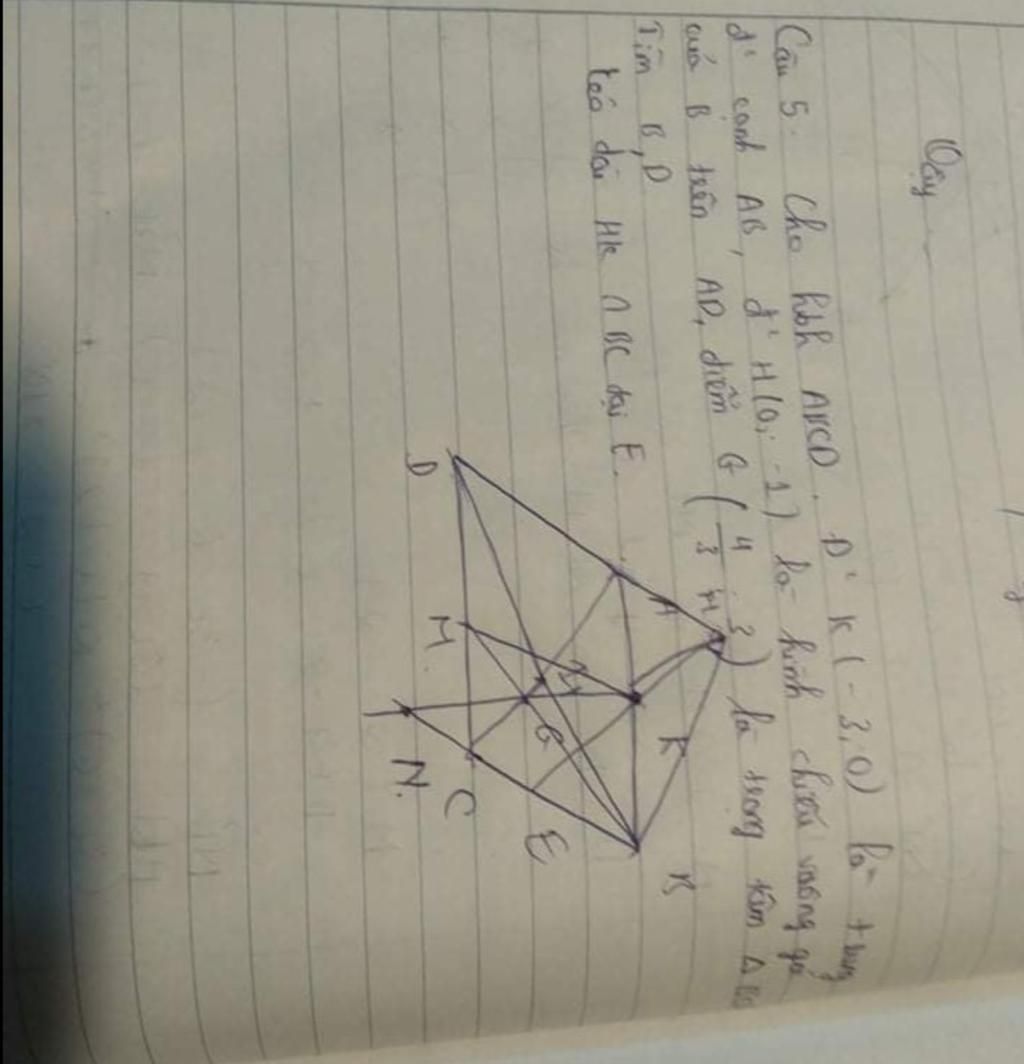 Oxy
Câu 5. Cho hbh ABCD. Đ' K (-3; 0) là trung
đ' cạnh AB, đ' H (0; -1) là hình chiếu vuông gó
của B trên AD, điểm G (4/3; 3) là trọng tâm Δ BC
Tìm B, D
kéo dài HK ∩ BC tại E.
H
A
K
B
I
G
E
D
M
C
N.